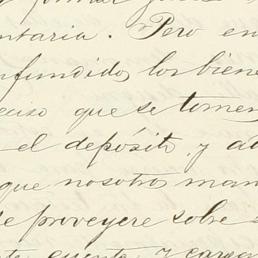 ntaria. Pero en
nfundido, los biene
caso que se tomen
el depósito, y ad
que nosotros man
de proveyere sobre
cuenta y cargo